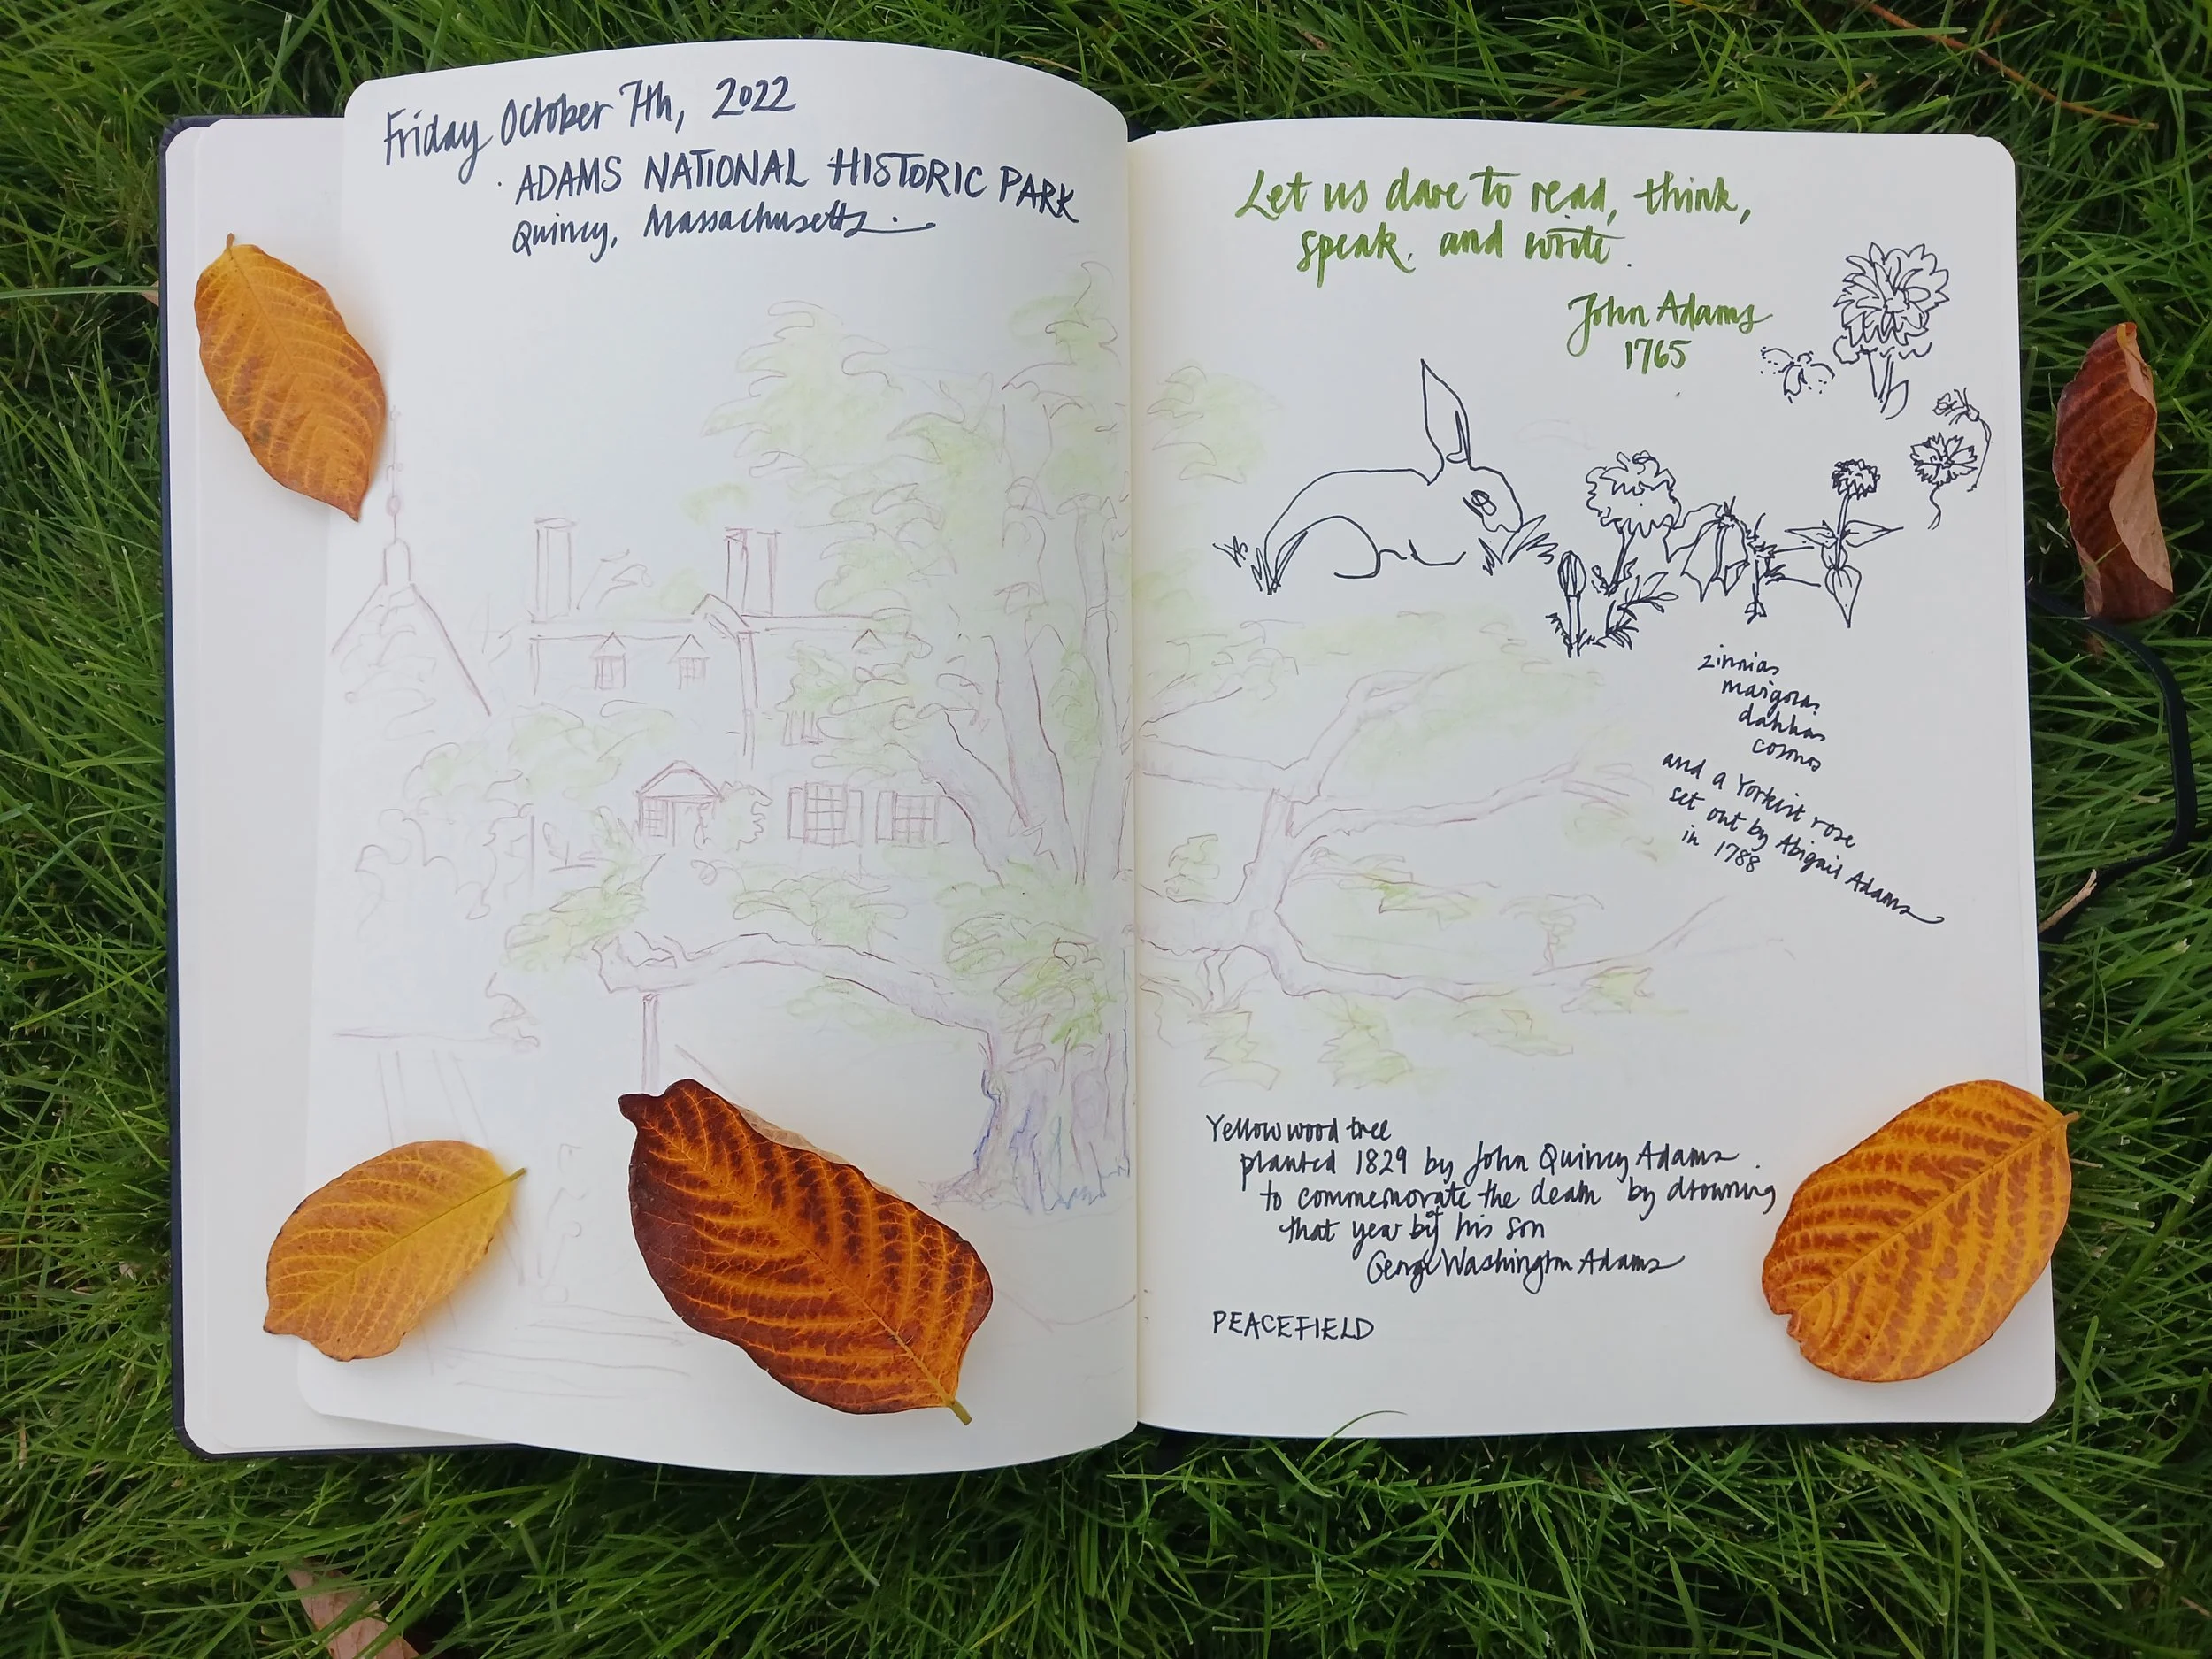 Friday October 7th, 2022
ADAMS NATIONAL HISTORIC PARK
Quincy, Massachusetts.
Let us dare to read, think,
speak, and write.
John Adams
1765
zinnias
marigolds
dahlias
cosmos
and a Yorkist rose
set out by Abigail Adams
in 1788
Yellowwood tree
planted 1829 by John Quincy Adams
to commemorate the death by drowning
that year of his son
George Washington Adams
PEACEFIELD